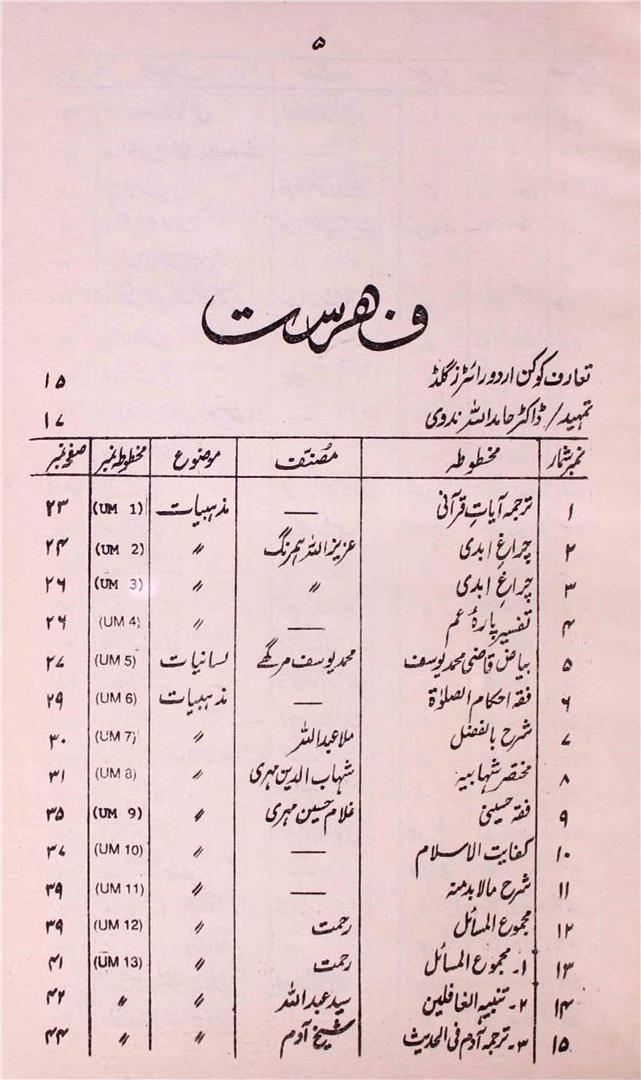 ۵
فہرست
تعارف کوکن اردو رائٹرز گلڈ ۱۵
تمہید/ ڈاکٹر حامد اللہ ندوی ۱۷
نمبر شمار مخطوطہ مصنف موضوع مخطوطہ نمبر صفحہ نمبر
۱ ترجمہ آیاتِ قرآنی — مذہبیات (UM 1) ۲۳
۲ چراغِ ابدی عزیز اللہ ہمرنگ 〃 (UM 2) ۲۴
۳ چراغِ ابدی 〃 〃 (UM 3) ۲۶
۴ تفسیر پارۂ عم — 〃 (UM 4) ۲۶
۵ بیاض قاضی محمد یوسف محمد یوسف مرگھے لسانیات (UM 5) ۲۷
۶ فقہ احکام الصلوٰۃ — مذہبیات (UM 6) ۲۹
۷ شرح بالفضل ملا عبداللہ 〃 (UM 7) ۳۰
۸ مختصر شہابیہ شہاب الدین مہری 〃 (UM 8) ۳۱
۹ فقہ حسینی غلام حسین مہری 〃 (UM 9) ۳۵
۱۰ کفایت الاسلام — 〃 (UM 10) ۳۷
۱۱ شرح مالابدمنہ — 〃 (UM 11) ۳۹
۱۲ مجموع المسائل رحمت 〃 (UM 12) ۳۹
۱۳ ۱۔ مجموع المسائل رحمت 〃 (UM 13) ۴۱
۱۴ ۲۔ تنبیہ الغافلین سید عبداللہ 〃 〃 ۴۲
۱۵ ۳۔ ترجمہ آدم فی الحدیث شیخ آدم 〃 〃 ۴۴